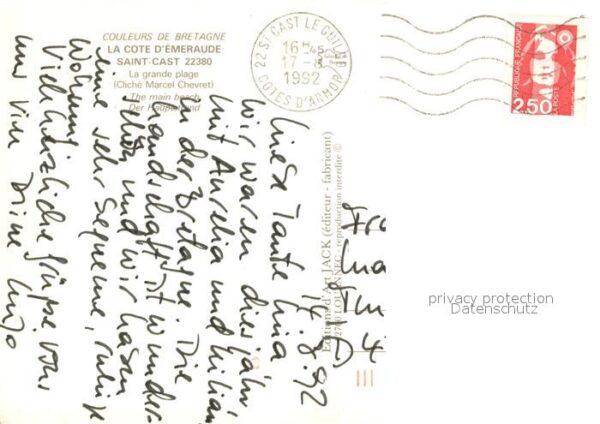 COULEURS DE BRETAGNE
LA COTE D'ÉMERAUDE
SAINT-CAST 22380
La grande plage
(Cliché Marcel Chevret)
The main beach
Der Hauptstrand
22 ST CAST LE GUILDO
16 H 45
17 - 8
1992
COTES D'ARMOR
REPUBLIQUE FRANÇAISE
2,50
LA POSTE
Editions d'Art JACK (éditeur - fabricant)
LOUANNEC - reproduction interdite ©
14.8.92
Liebe Tante Lina
wir waren dieses Jahr
mit Aurelia und Kilian
in der Bretagne. Die
Landschaft ist wunder-
schön und wir haben
eine sehr bequeme, ruhige
Wohnung
Viel herzliche Grüsse von
uns von Deine
D
4
privacy protection
Datenschutz